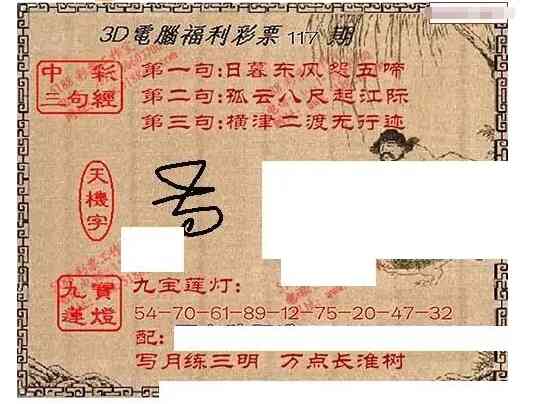 3D電腦福利彩票117期
中彩三句經
第一句:日暮东风怨五啼
第二句:孤云八尺起江际
第三句:横津二渡无行迹
天機字
九寶蓮燈
九宝莲灯:
54-70-61-89-12-75-20-47-32
配:
写月练三明 万点长淮树